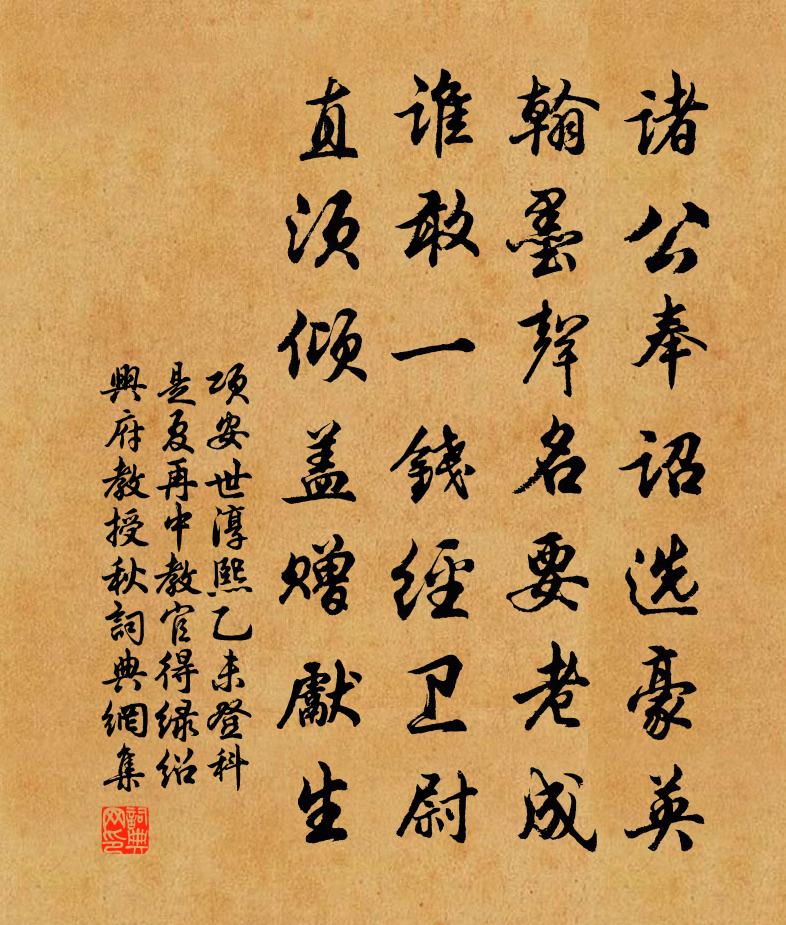 诸公奉诏选豪英
翰墨聲名要老成
谁敢一錢經卫尉
直须倾盖赠獻生
项安世淳熙乙未登科
是夏再中教官得缘绍
興府教授秋詞典網集
詞典网印